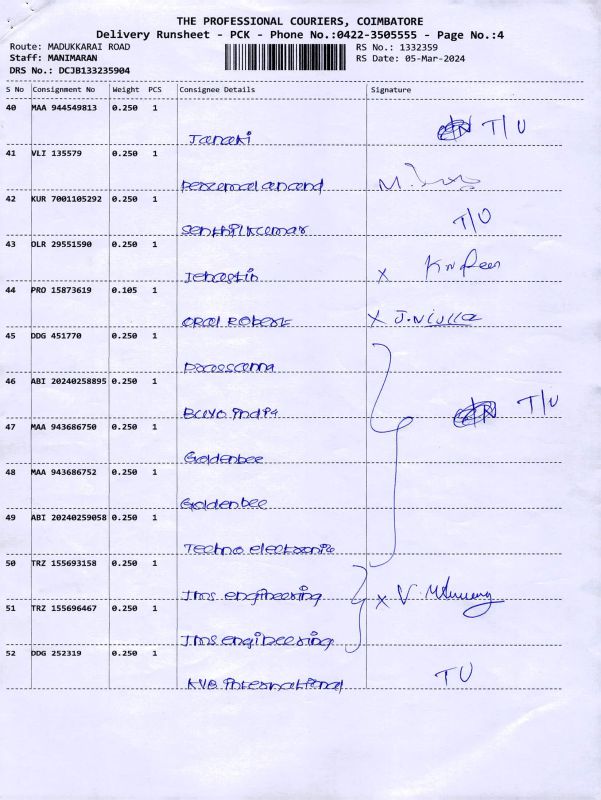 THE PROFESSIONAL COURIERS, COIMBATORE
Delivery Runsheet - PCK - Phone No.:0422-3505555 - Page No.:4
Route: MADUKKARAI ROAD RS No.: 1332359
Staff: MANIMARAN RS Date: 05-Mar-2024
DRS No.: DCJB133235904
S No Consignment No Weight PCS Consignee Details Signature
40 MAA 944549813 0.250 1
Janaki T/U
41 VLI 135579 0.250 1
Perumal anand M.
42 KUR 7001105292 0.250 1
Senthilkumar T/U
43 DLR 29551590 0.250 1
Jebastin X
44 PRO 15873619 0.105 1
Oral Robert X J.
45 DDG 451770 0.250 1
46 ABI 20240258895 0.250 1
India T/U
47 MAA 943686750 0.250 1
Goldenbee
48 MAA 943686752 0.250 1
Goldenbee
49 ABI 20240259058 0.250 1
Techno electronic
50 TRZ 155693158 0.250 1
Jms engineering X V.
51 TRZ 155696467 0.250 1
Jms engineering
52 DDG 252319 0.250 1
KVB International TU